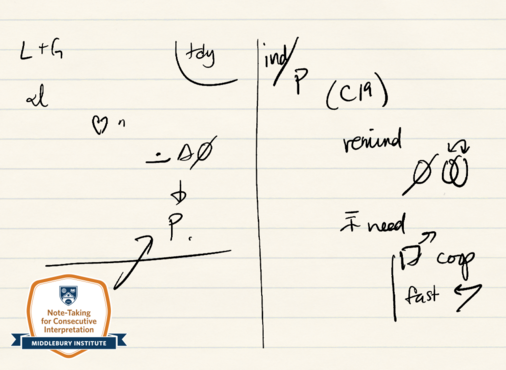 L + G
tdy
P.
ind/
P
(C19)
remind
need
coop
fast
Note-Taking
for Consecutive
Interpretation
MIDDLEBURY INSTITUTE